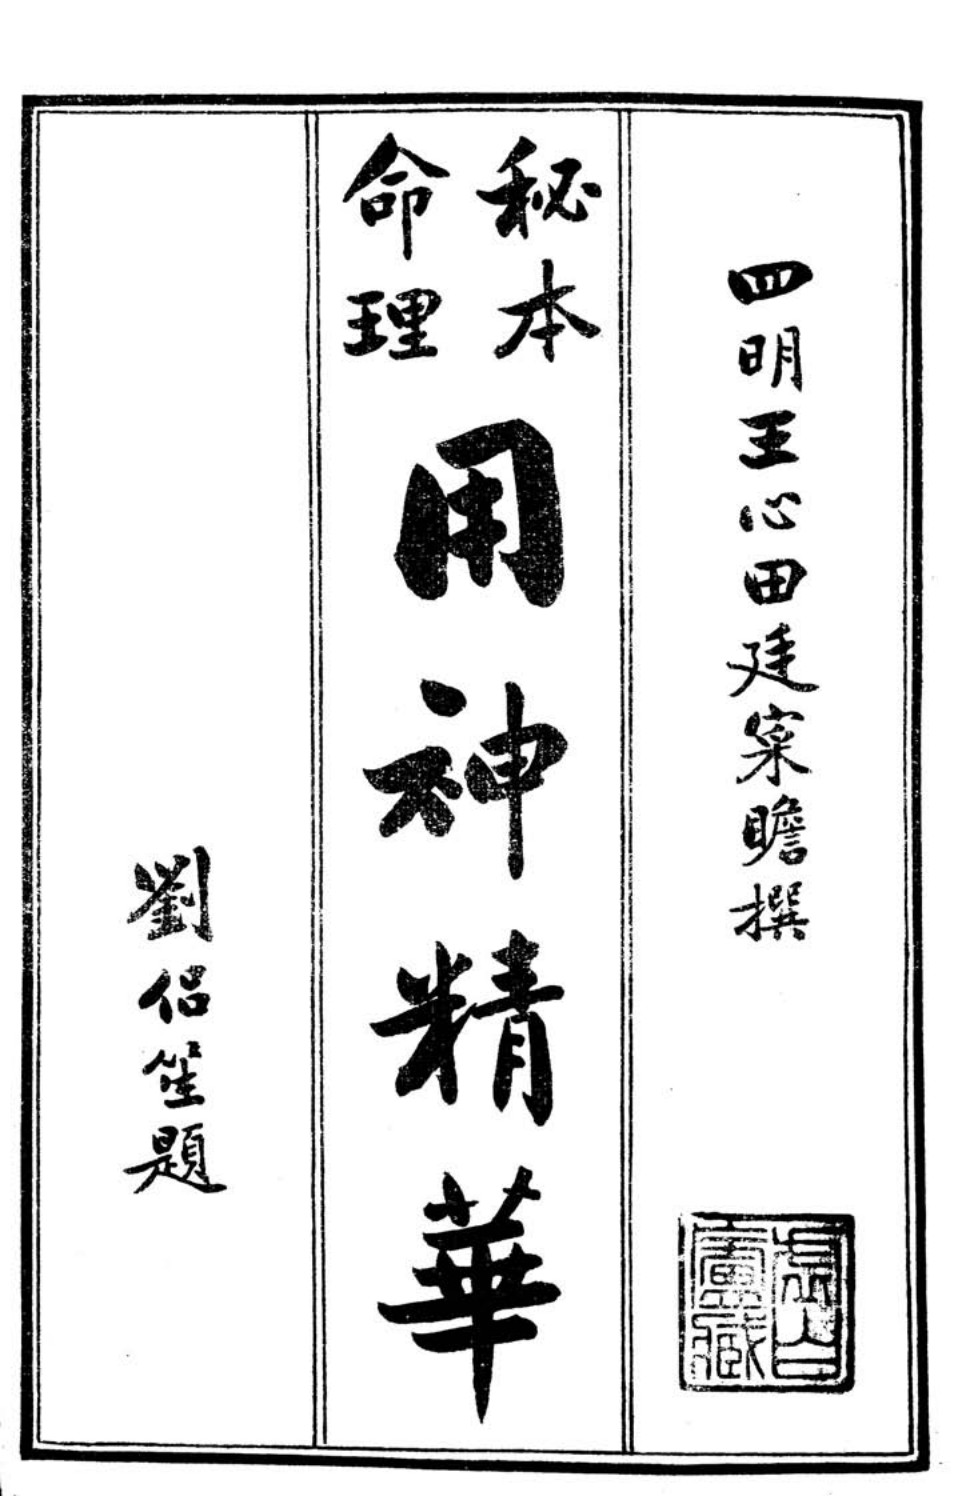 四明王心田廷寀瞻撰
秘本
命理
用神精華
劉侶笙題
廬藏